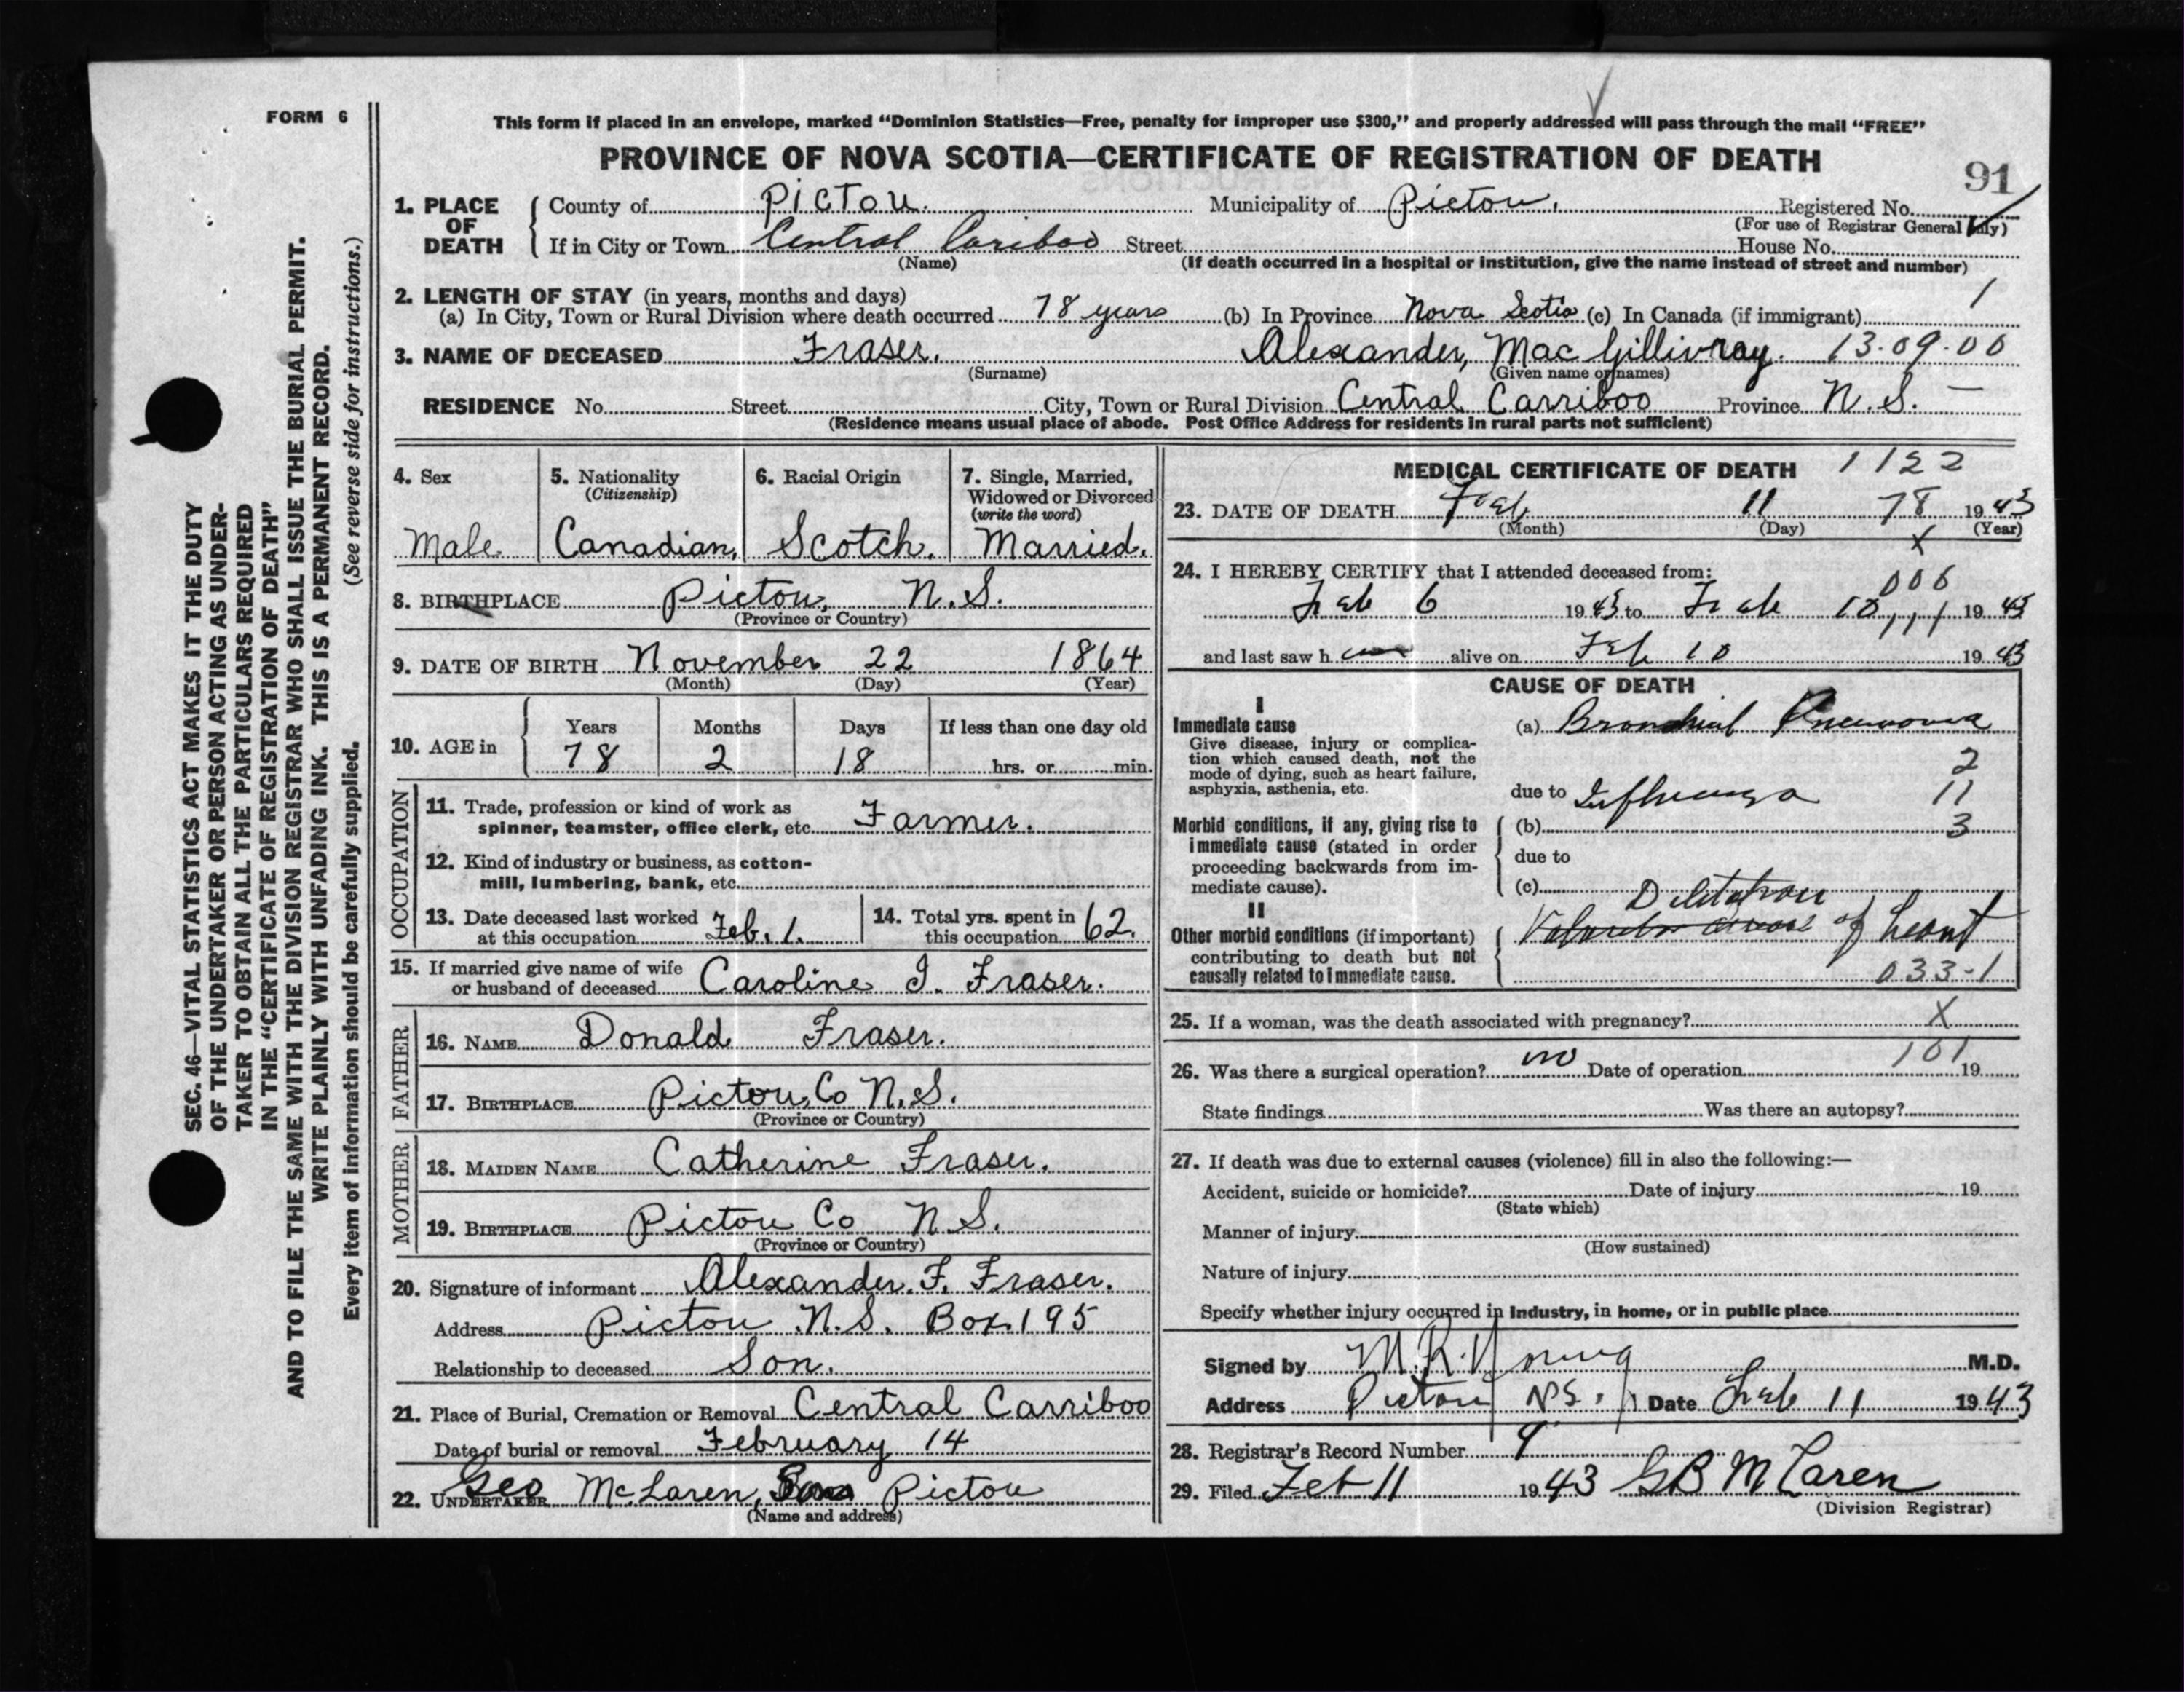 FORM 6
This form if placed in an envelope, marked “Dominion Statistics—Free, penalty for improper use $300,” and properly addressed will pass through the mail “FREE”
PROVINCE OF NOVA SCOTIA—CERTIFICATE OF REGISTRATION OF DEATH
91
1. PLACE OF DEATH County of Pictou. Municipality of Pictou. Registered No.
(For use of Registrar General only)
If in City or Town Central Cariboo Street House No.
(Name) (If death occurred in a hospital or institution, give the name instead of street and number)
2. LENGTH OF STAY (in years, months and days) 1
(a) In City, Town or Rural Division where death occurred 78 years (b) In Province Nova Scotia (c) In Canada (if immigrant)
3. NAME OF DECEASED Fraser. Alexander, MacGillivray. 13-09-00
(Surname) (Given name or names)
RESIDENCE No. Street City, Town or Rural Division Central Carriboo Province N.S. —
(Residence means usual place of abode. Post Office Address for residents in rural parts not sufficient)
4. Sex
Male
5. Nationality
(Citizenship)
Canadian.
6. Racial Origin
Scotch.
7. Single, Married,
Widowed or Divorced
(write the word)
Married.
8. BIRTHPLACE Pictou, N.S.
(Province or Country)
9. DATE OF BIRTH November 22 1864
(Month) (Day) (Year)
10. AGE in Years Months Days If less than one day old
78 2 18 hrs. or min.
OCCUPATION
11. Trade, profession or kind of work as
spinner, teamster, office clerk, etc. Farmer.
12. Kind of industry or business, as cotton-
mill, lumbering, bank, etc.
13. Date deceased last worked
at this occupation Feb. 1.
14. Total yrs. spent in
this occupation 62.
15. If married give name of wife
or husband of deceased Caroline I. Fraser.
FATHER
16. NAME Donald Fraser.
17. BIRTHPLACE Pictou, Co N.S.
(Province or Country)
MOTHER
18. MAIDEN NAME Catherine Fraser.
19. BIRTHPLACE Pictou Co N.S.
(Province or Country)
20. Signature of informant Alexander. F. Fraser.
Address Pictou N.S. Box 195
Relationship to deceased Son.
21. Place of Burial, Cremation or Removal Central Carriboo
Date of burial or removal February 14
22. UNDERTAKER Geo McLaren, Sons Pictou
(Name and address)
MEDICAL CERTIFICATE OF DEATH 1122
23. DATE OF DEATH Feb 11 78 1943
(Month) (Day) (Year)
X
24. I HEREBY CERTIFY that I attended deceased from:
006
Feb 6 1943 to Feb 10 1943
111
and last saw h alive on Feb 10 1943
CAUSE OF DEATH
I
Immediate cause
Give disease, injury or complica-
tion which caused death, not the
mode of dying, such as heart failure,
asphyxia, asthenia, etc.
(a) Bronchial Pneumonia
2
due to Influenza 11
Morbid conditions, if any, giving rise to
immediate cause (stated in order
proceeding backwards from im-
mediate cause).
(b) 3
due to
(c)
II
Other morbid conditions (if important)
contributing to death but not
causally related to immediate cause.
Dilitation
of heart
033-1
25. If a woman, was the death associated with pregnancy? X
26. Was there a surgical operation? no Date of operation 101 19
State findings Was there an autopsy?
27. If death was due to external causes (violence) fill in also the following:—
Accident, suicide or homicide? Date of injury 19
(State which)
Manner of injury
(How sustained)
Nature of injury
Specify whether injury occurred in industry, in home, or in public place
Signed by M.R. Young M.D.
Address Pictou N.S. Date Feb 11 1943
28. Registrar's Record Number 9
29. Filed Feb 11 1943 GB McLaren
(Division Registrar)
SEC. 46—VITAL STATISTICS ACT MAKES IT THE DUTY
OF THE UNDERTAKER OR PERSON ACTING AS UNDER-
TAKER TO OBTAIN ALL THE PARTICULARS REQUIRED
IN THE “CERTIFICATE OF REGISTRATION OF DEATH”
AND TO FILE THE SAME WITH THE DIVISION REGISTRAR WHO SHALL ISSUE THE BURIAL PERMIT.
WRITE PLAINLY WITH UNFADING INK. THIS IS A PERMANENT RECORD.
Every item of information should be carefully supplied. (See reverse side for instructions.)